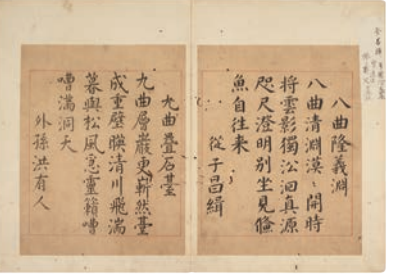 八曲隆義淵
八曲清淵漠〻開時
將雲影獨沿洄真源
咫尺澄明別坐見鯈
魚自往來
從子昌緝
九曲疊石臺
九曲層巖更嶄然臺
成重壁暎清川飛湍
暮與松風急靈籟嘈
嘈滿洞天
外孫洪有人